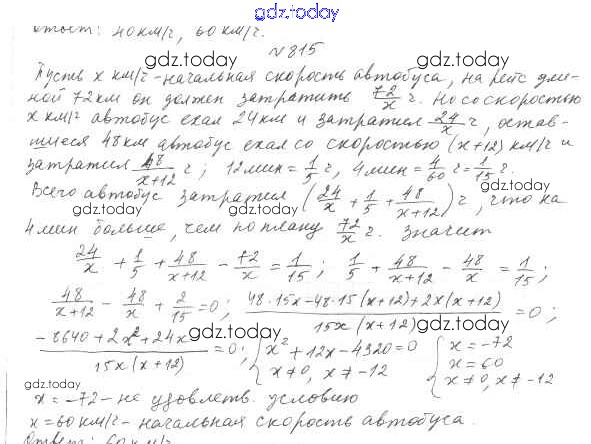 gdz.today
ответ: 40 км/ч, 60 км/ч.
gdz.today
№ 815
gdz.today
Пусть x км/ч - начальная скорость автобуса, на рейс дли-
ной 72 км он должен затратить 72/x ч. Но со скоростью
gdz.today gdz.today
x км/ч автобус ехал 24 км и затратил 24/x ч, остав-
шиеся 48 км автобус ехал со скоростью (x+12) км/ч и
gdz.today
затратил 48/(x+12) ч; 12 мин = 1/5 ч, 4 мин = 4/60 ч = 1/15 ч.
Всего автобус затратил (24/x + 1/5 + 48/(x+12)) ч, что на
gdz.today gdz.today
4 мин больше, чем по плану 72/x ч. Значит
24/x + 1/5 + 48/(x+12) - 72/x = 1/15; 1/5 + 48/(x+12) - 48/x = 1/15;
gdz.today
48/(x+12) - 48/x + 2/15 = 0; (48·15x-48·15(x+12)+2x(x+12))/(15x(x+12)) = 0;
gdz.today gdz.today
(-8640+2x²+24x)/(15x(x+12)) = 0; { x²+12x-4320=0 { x=-72
x≠0, x≠-12 x=60
x≠0, x≠-12
gdz.today
gdz.today
x=-72 - не удовлетв. условию
x=60 км/ч - начальная скорость автобуса.
gdz.today
gdz.today
Ответ: 60 км/ч.